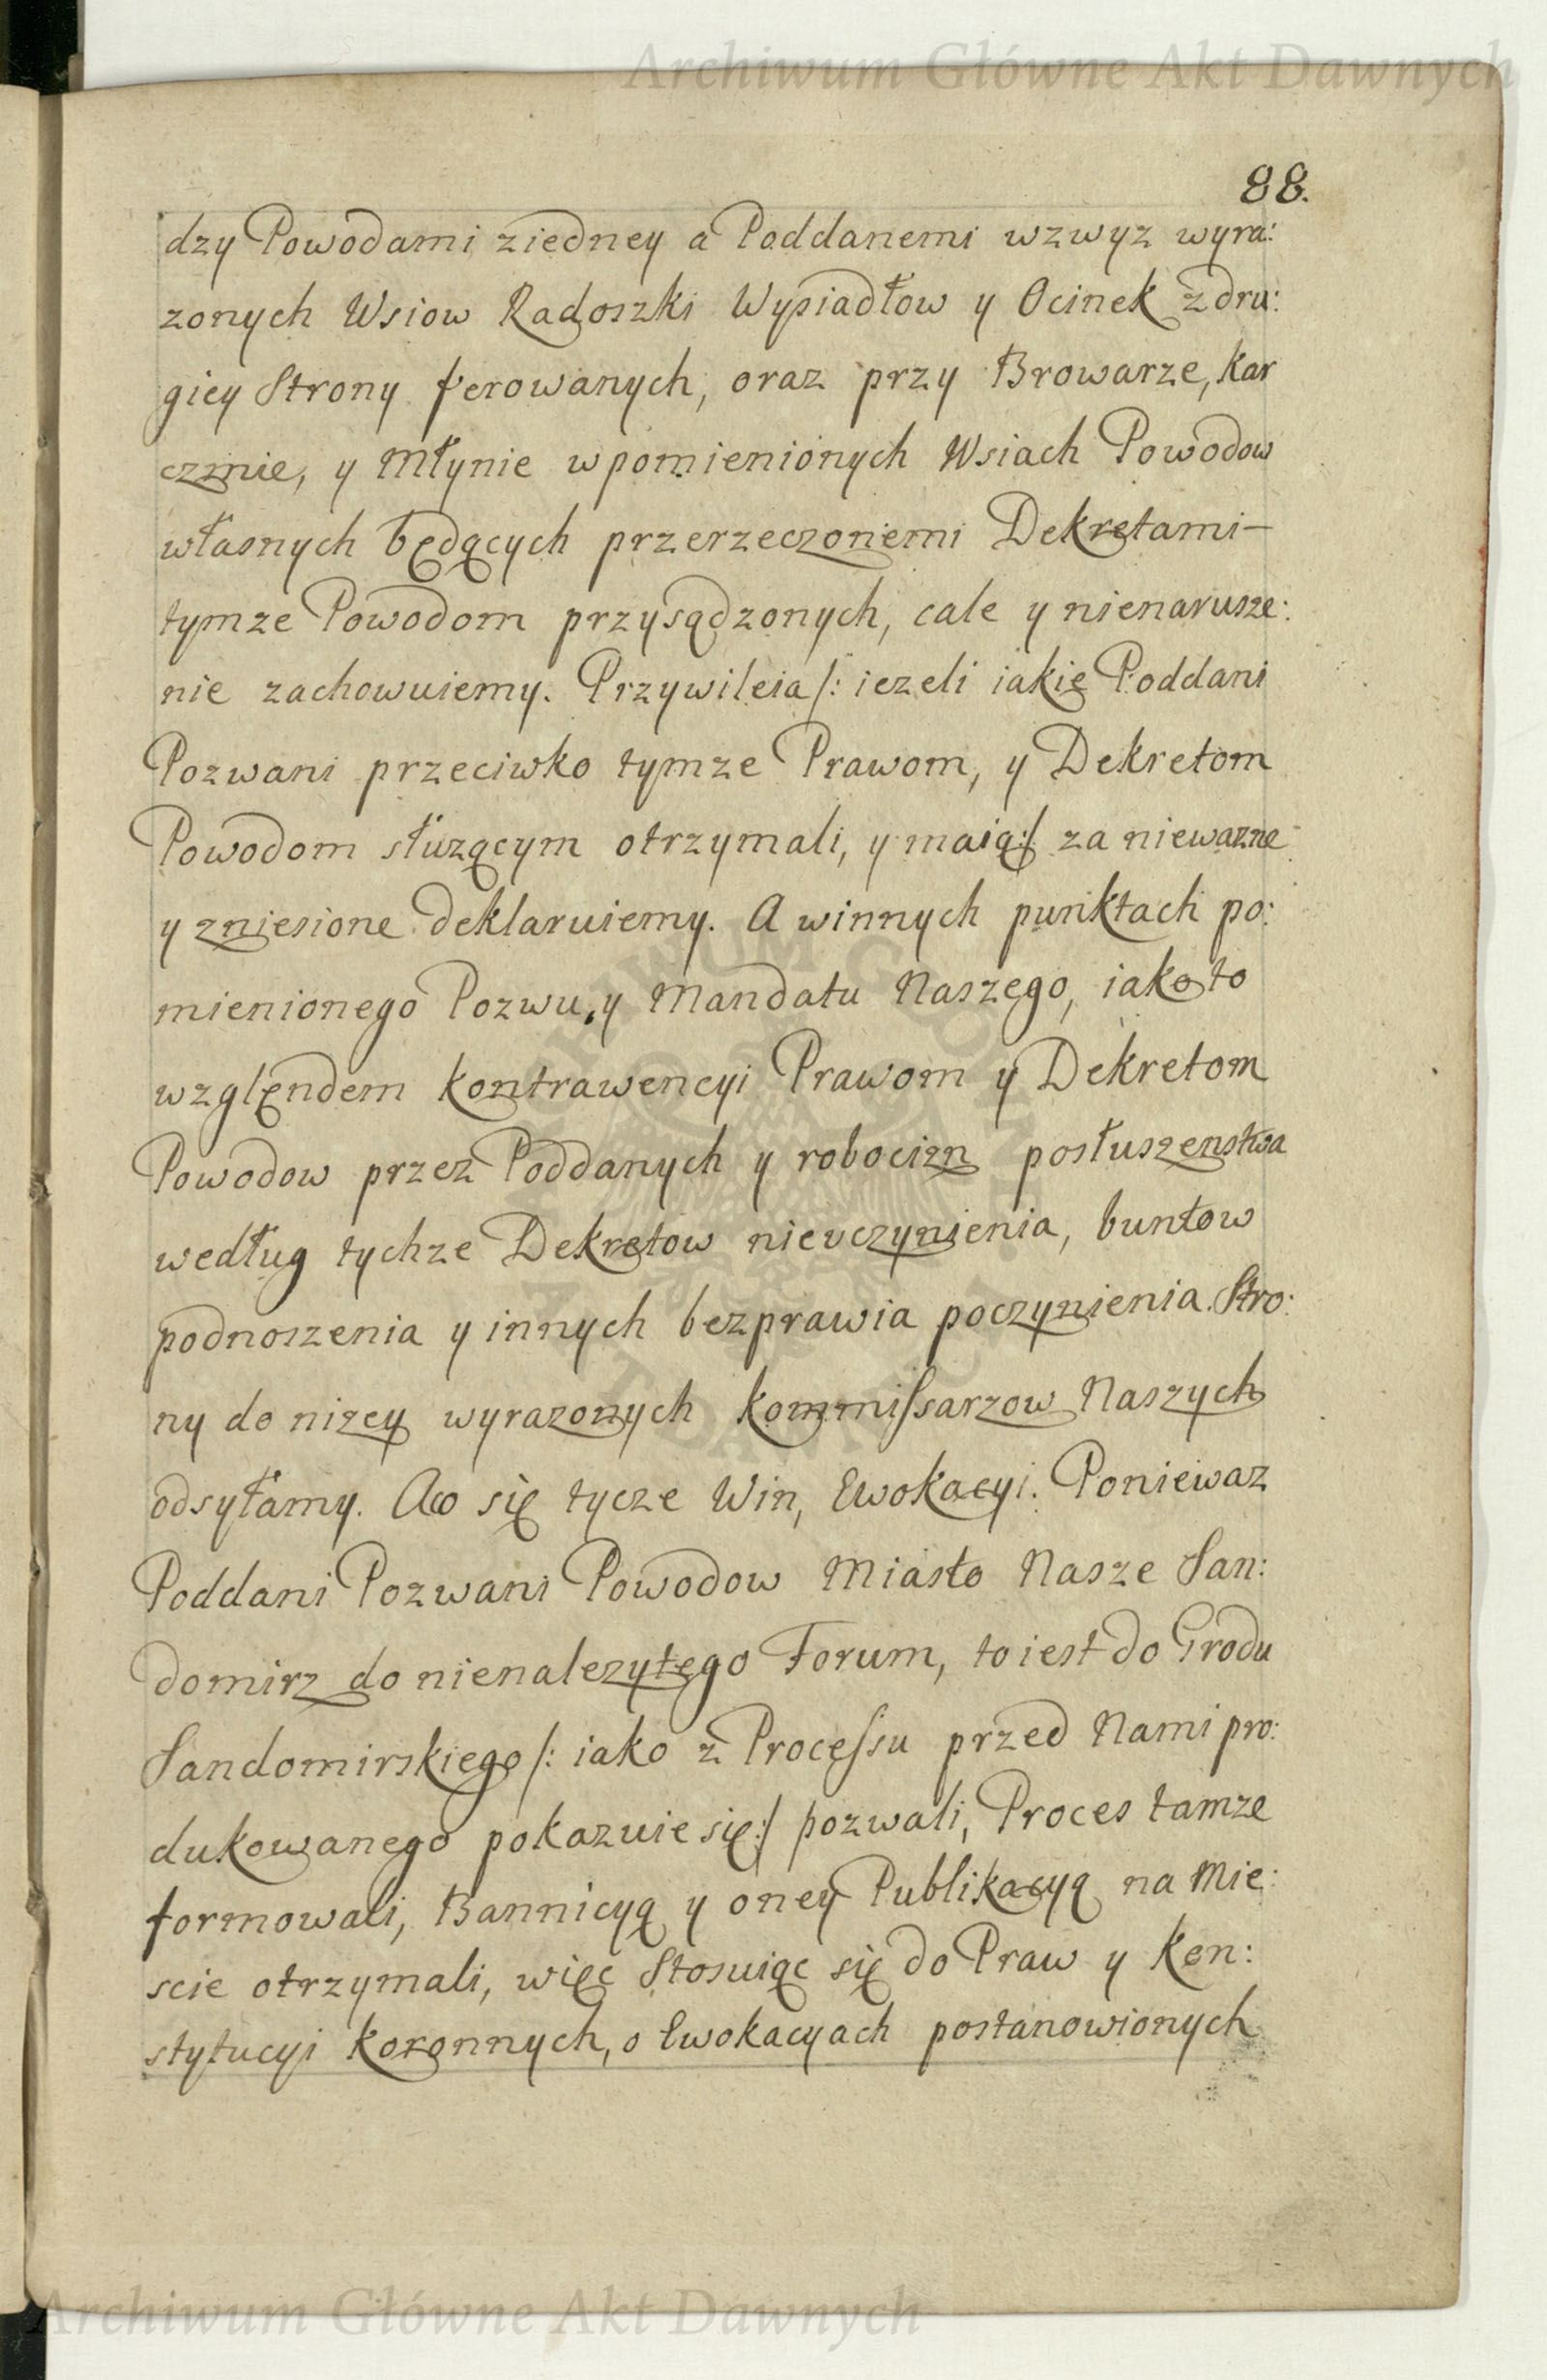 Archiwum Główne Akt Dawnych
88.
dzy Powodami ziedney a Poddanemi wzwyz wyra:
zonych Wsiow Radoszki Wysiadłow y Ocinek zdru:
giey Strony ferowanych, oraz przy Browarze, Kar
czmie, y Młynie wpomienionych Wsiach Powodow
własnych będących przerzeczonemi Dekretami—
tymze Powodom przysądzonych, cale y nienarusze:
nie zachowuiemy. Przywileia /: iezeli iakie Poddani
Pozwani przeciwko tymze Prawom, y Dekretom
Powodom słuzącym otrzymali, y maią :/ za niewazne
y zniesione deklaruiemy. A winnych punktach po:
mienionego Pozwu, y Mandatu Naszego, iako to
wzglęndem Kontrawencyi Prawom y Dekretom
Powodow przez Poddanych y robocizn posłuszenstwa
według tychze Dekretow nievczynienia, buntow
podnoszenia y innych bezprawia poczynienia. Stro:
ny do nizey wyrazonych Kommissarzow Naszych
odsyłamy. Aco się tycze Win, Ewokacyi. Poniewaz
Poddani Pozwani Powodow Miasto Nasze San:
domirz do nienalezytego Forum, to iest do Grodu
Sandomirskiego /: iako z Processu przed Nami pro:
dukowanego pokazuie się :/ pozwali, Proces tamze
formowali, Bannicyą y oney Publikacyą na Mie:
scie otrzymali, więc Stosuiąc się do Praw y Kon:
stytucyi Koronnych, o Ewokacyach postanowionych
Archiwum Główne Akt Dawnych